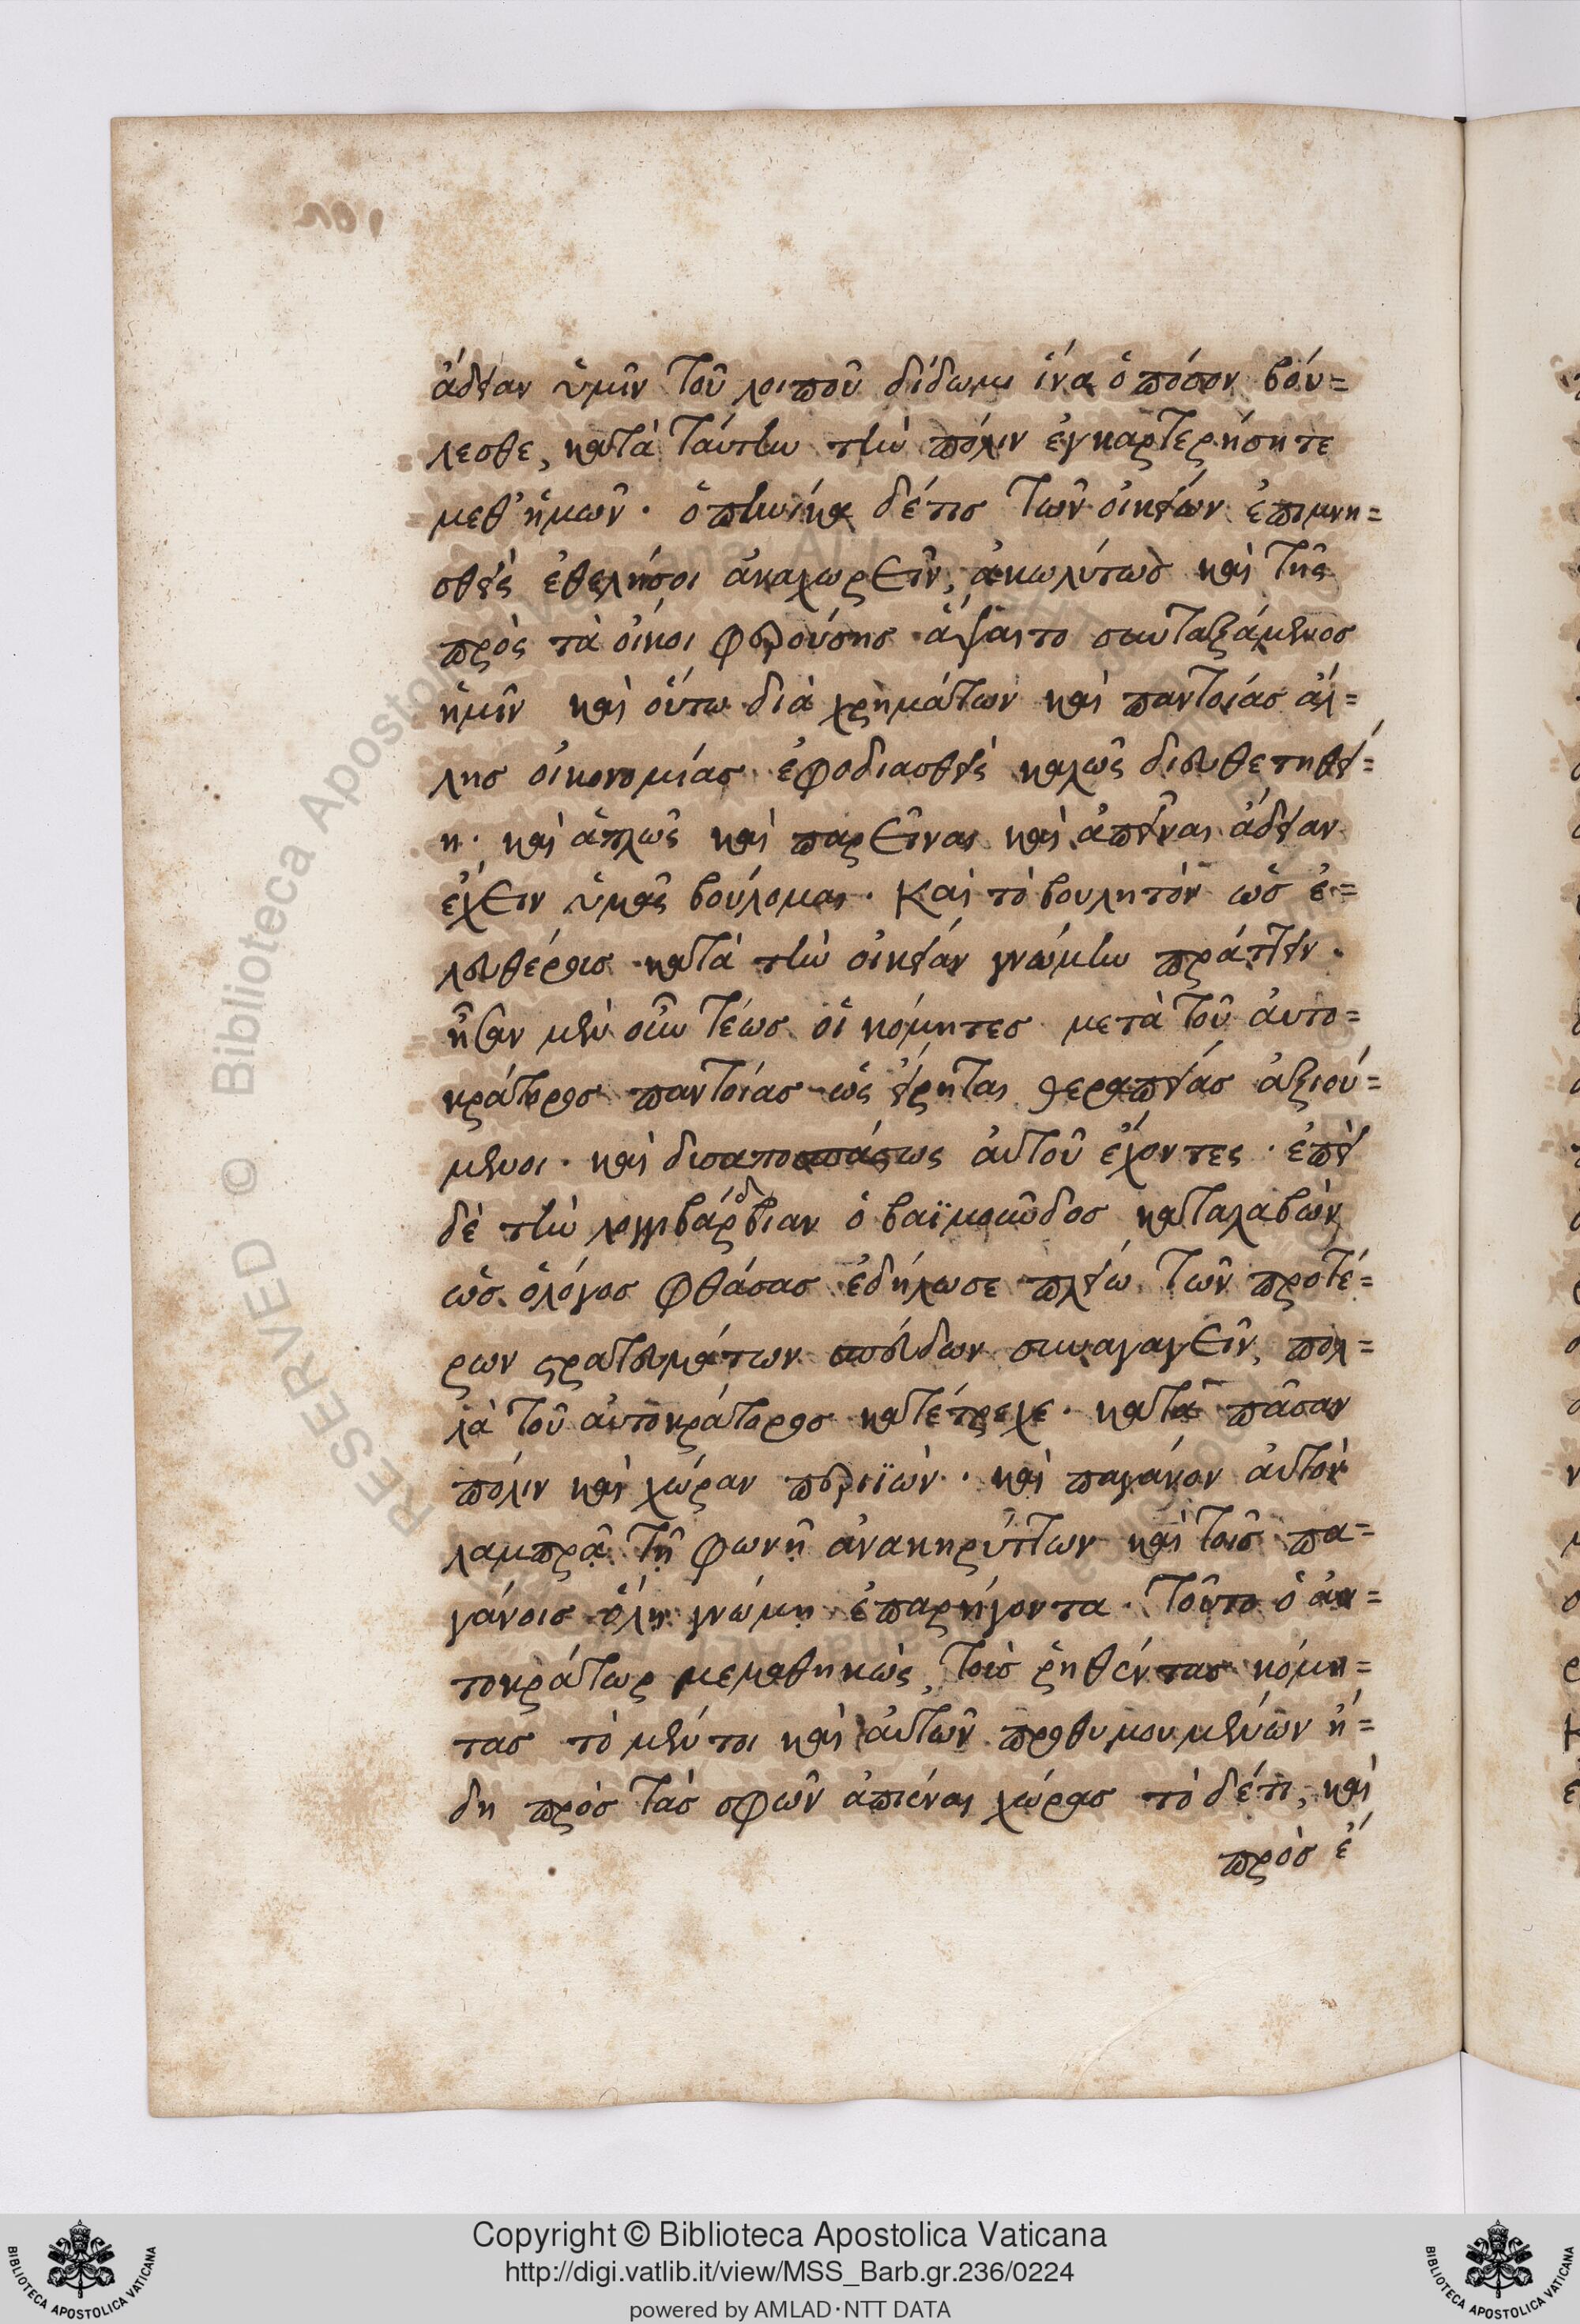 ἄδειαν ὑμῖν τοῦ λοιποῦ δίδωμι ἵνα ὁπόσον βού=
λεσθε, κατὰ ταύτην τὴν πόλιν ἐγκαρτερήσητε
μεθ' ἡμῶν. ὁπηνίκα δέ τις τῶν οἰκείων ἐπιμνη=
σθεὶς ἐθελήσοι ἀναχωρεῖν, ἀκωλύτως καὶ τῆς
πρὸς τὰ οἴκοι φερούσης ἅψαιτο συνταξάμενος
ἡμῖν καὶ οὕτω διὰ χρημάτων καὶ παντοίας ἄλ=
λης οἰκονομίας ἐφοδιασθεὶς καλῶς διευθετηθεί=
η. καὶ ἁπλῶς καὶ παρεῖναι καὶ ἀπεῖναι ἄδειαν
ἔχειν ὑμᾶς βούλομαι. Καὶ τὸ βουλητὸν ὡς ἐ=
λευθέροις κατὰ τὴν οἰκείαν γνώμην πράττειν.
ἦσαν μὲν οὖν τέως οἱ κόμητες μετὰ τοῦ αὐτο=
κράτορος παντοίας ὡς εἴρηται θεραπείας ἀξιού=
μενοι. καὶ δυσαποσπάστως αὐτοῦ ἔχοντες. ἐπεὶ
δὲ τὴν λογγιβάρδβιαν ὁ βαϊμοῦνδος καταλαβὼν
ὡς ὁ λόγος φθάσας ἐδήλωσε πλείω τῶν προτέ=
ρων στρατευμάτων σπεύδων συναγαγεῖν, πολ=
λὰ τοῦ αὐτοκράτορος κατέτρεχε. κατὰ πᾶσαν
πόλιν καὶ χώραν περιϊών. καὶ παγάνον αὐτὸν
λαμπρᾷ τῇ φωνῇ ἀνακηρύττων καὶ τοῖς πα=
γάνοις ὅλῃ γνώμῃ ἐπαρήγοντα. τοῦτο ὁ αὐ=
τοκράτωρ μεμαθηκώς, τοὺς ῥηθέντας κόμη=
τας τὸ μέν τοι καὶ αὐτῶν προθυμουμένων ἤ=
δη πρὸς τὰς σφῶν ἀπιέναι χώρας τὸ δέ τι, καὶ
πρὸς ἐ
Copyright © Biblioteca Apostolica Vaticana
http://digi.vatlib.it/view/MSS_Barb.gr.236/0224
powered by AMLAD·NTT DATA
BIBLIOTECA APOSTOLICA VATICANA
BIBLIOTECA APOSTOLICA VATICANA